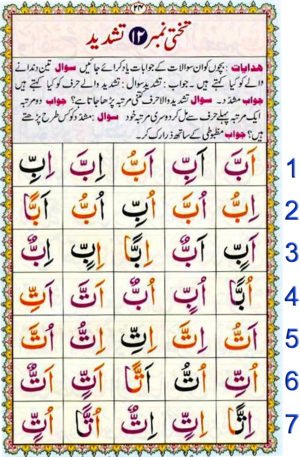 تختی نمبر ۱۲ تشدید
ہدایات: بچوں کو ان سوالات کے جوابات یاد کرائے جائیں سوال تین دندانے
والے کو کیا کہتے ہیں۔ جواب: تشدید سوال: تشدید والے حرف کو کیا کہتے ہیں
جواب مشدّد۔ سوال تشدید والا حرف کتنی مرتبہ پڑھا جاتا ہے؟ جواب دو مرتبہ
ایک مرتبہ پہلے حرف سے مل کر دوسری مرتبہ خود سوال: مشدّد کو کس طرح پڑھتے
ہیں؟ جواب مضبوطی کے ساتھ ذرا رک کر۔
اَبَّ اُبَّ اَبُّ اِبَّ اِبِّ 1
اِبُّ اُبُّ اُبِّ اُبُّ اَبًّا 2
اَبٍّ اَبٌّ اِبًّا اِبٍّ اِبٌّ 3
اُبًّا اُبٍّ اُبٌّ اَتَّ اَتِّ 4
اَتُّ اِتَّ اِتِّ اِتُّ اُتَّ 5
اُتِّ اُتُّ اَتًّا اَتٍّ اَتٌّ 6
اِتًّا اِتٍّ اِتٌّ اُتًّا اُتٍّ 7